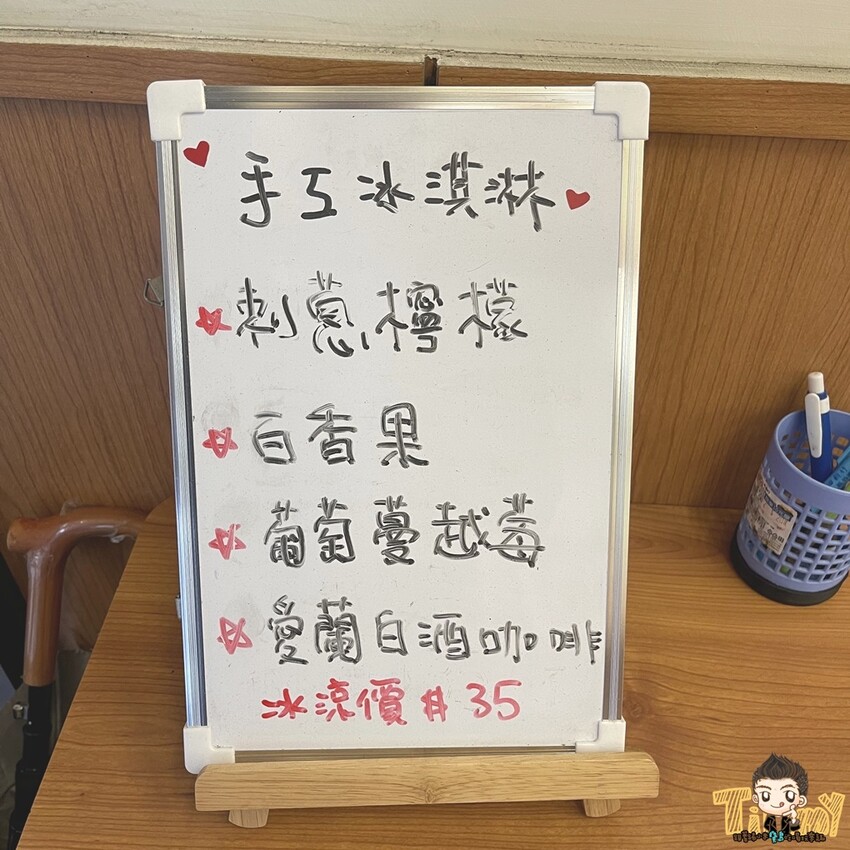 手工冰淇淋
刺蔥檸檬
百香果
葡萄蔓越莓
愛蘭白酒咖啡
冰涼價#35
TimmY